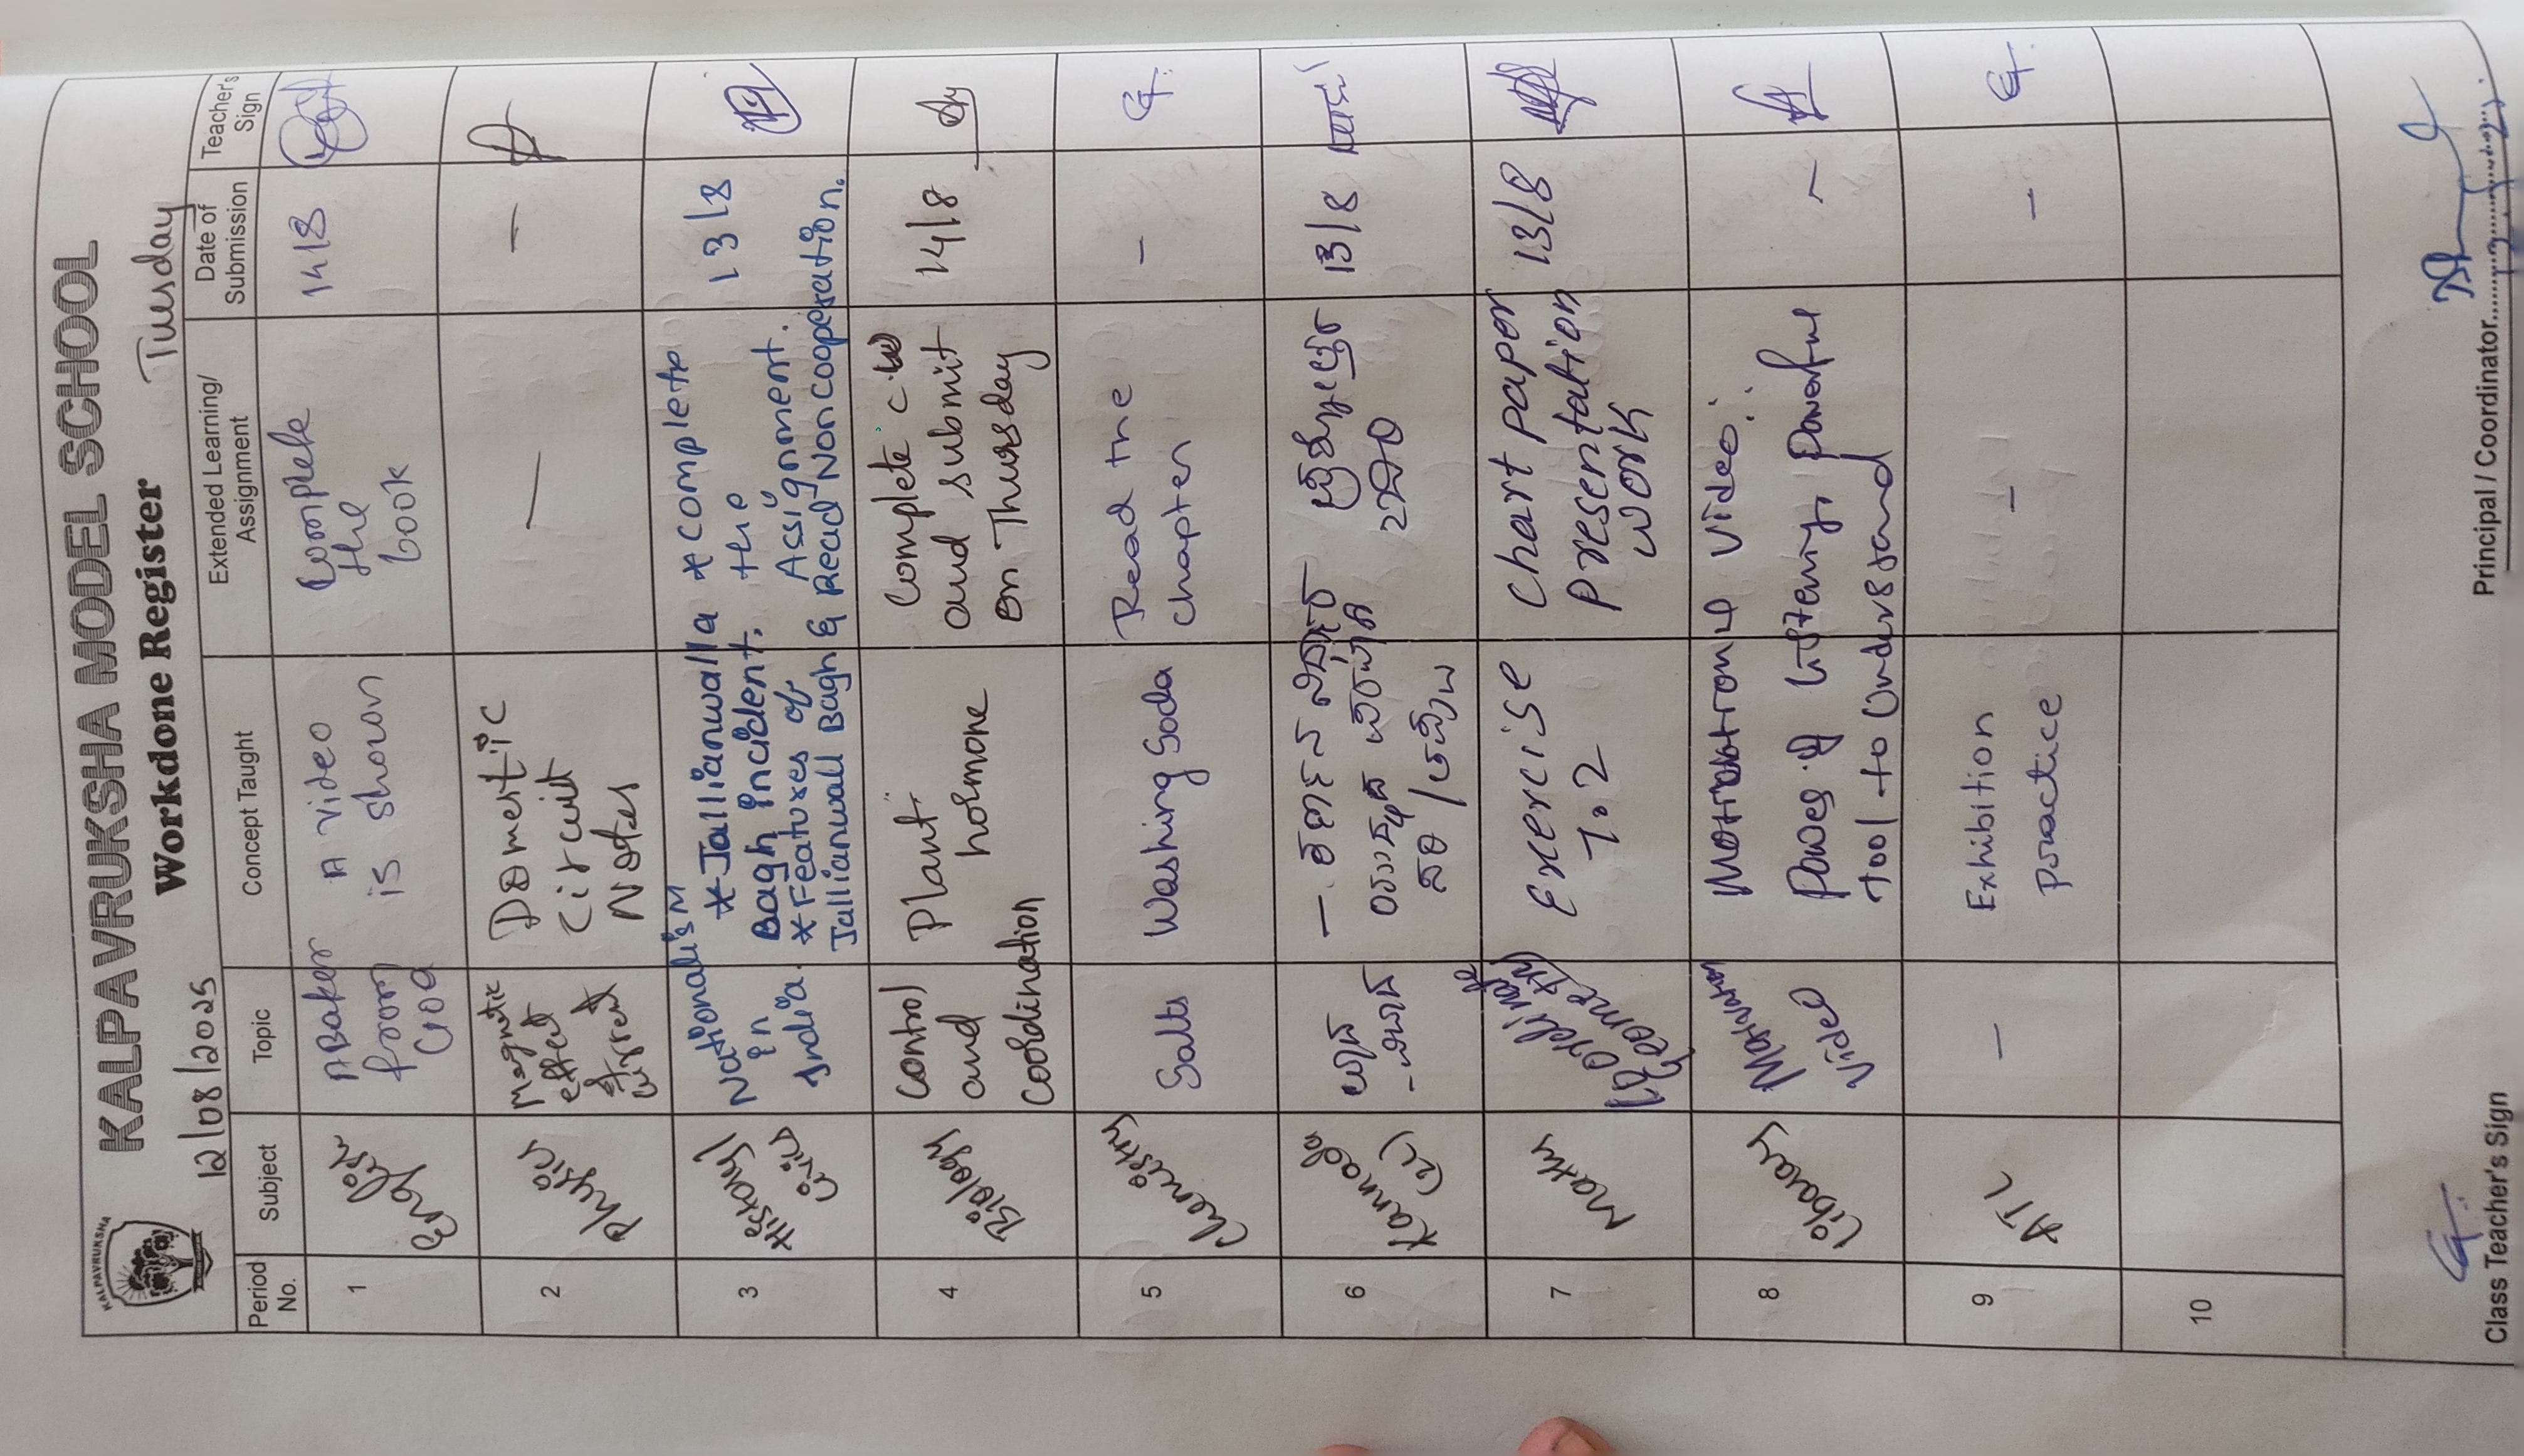 KALPAVRUKSHA
KALPAVRUKSHA MODEL SCHOOL
Workdone Register
12/08/2025
Tuesday
Period No.
Subject
Topic
Concept Taught
Extended Learning/ Assignment
Date of Submission
Teacher's Sign
1
English
A Baker
from
Goa
A video
is shown
Complete
the
book
14/8
2
Physics
Magnetic
effect
of
current
Domestic
Circuit
Notes
—
—
3
History/
Civics
Nationalism
in
India.
* Jallianwalla
Bagh incident.
* Features of
Jallianwall Bagh
* complete
the
Assignment.
& Read Noncooperation.
13/8
4
Biology
Control
and
Coordination
Plant
hormone
Complete c.w
and submit
on Thursday
14/8
5
Chemistry
Salts
Washing Soda
Read the
chapter
-
6
Kannada
13/8
7
Maths
Exercise
7.2
Chart paper
Presentation
work
13/8
8
Library
Motivation
Video
Video:
Power of listening, Powerful
tool to understand
~
9
ATL
—
Exhibition
practice
-
-
10
Class Teacher's Sign
Principal / Coordinator